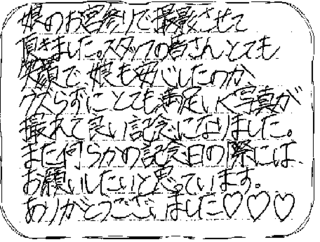 娘のお宮参りで撮影させて
頂きました。スタッフの皆さんとても
笑顔で、娘も安心したのか
ぐずらずにとても満足いく写真が
撮れて良い記念になりました。
また何らかの記念日の際には
お願いしたいと思っています。
ありがとうございました♡♡♡